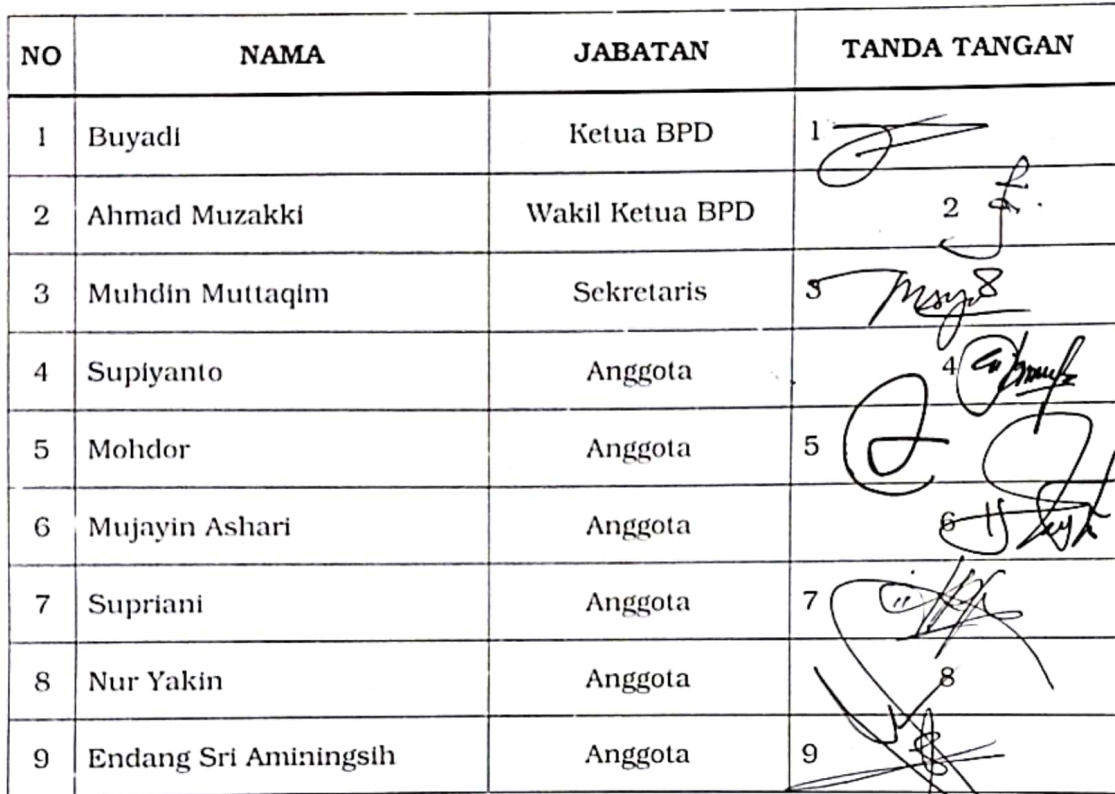 NO NAMA JABATAN TANDA TANGAN
1 Buyadi Ketua BPD 1
2 Ahmad Muzakki Wakil Ketua BPD 2
3 Muhdin Muttaqim Sekretaris 3
4 Supiyanto Anggota 4
5 Mohdor Anggota 5
6 Mujayin Ashari Anggota 6
7 Supriani Anggota 7
8 Nur Yakin Anggota 8
9 Endang Sri Aminingsih Anggota 9